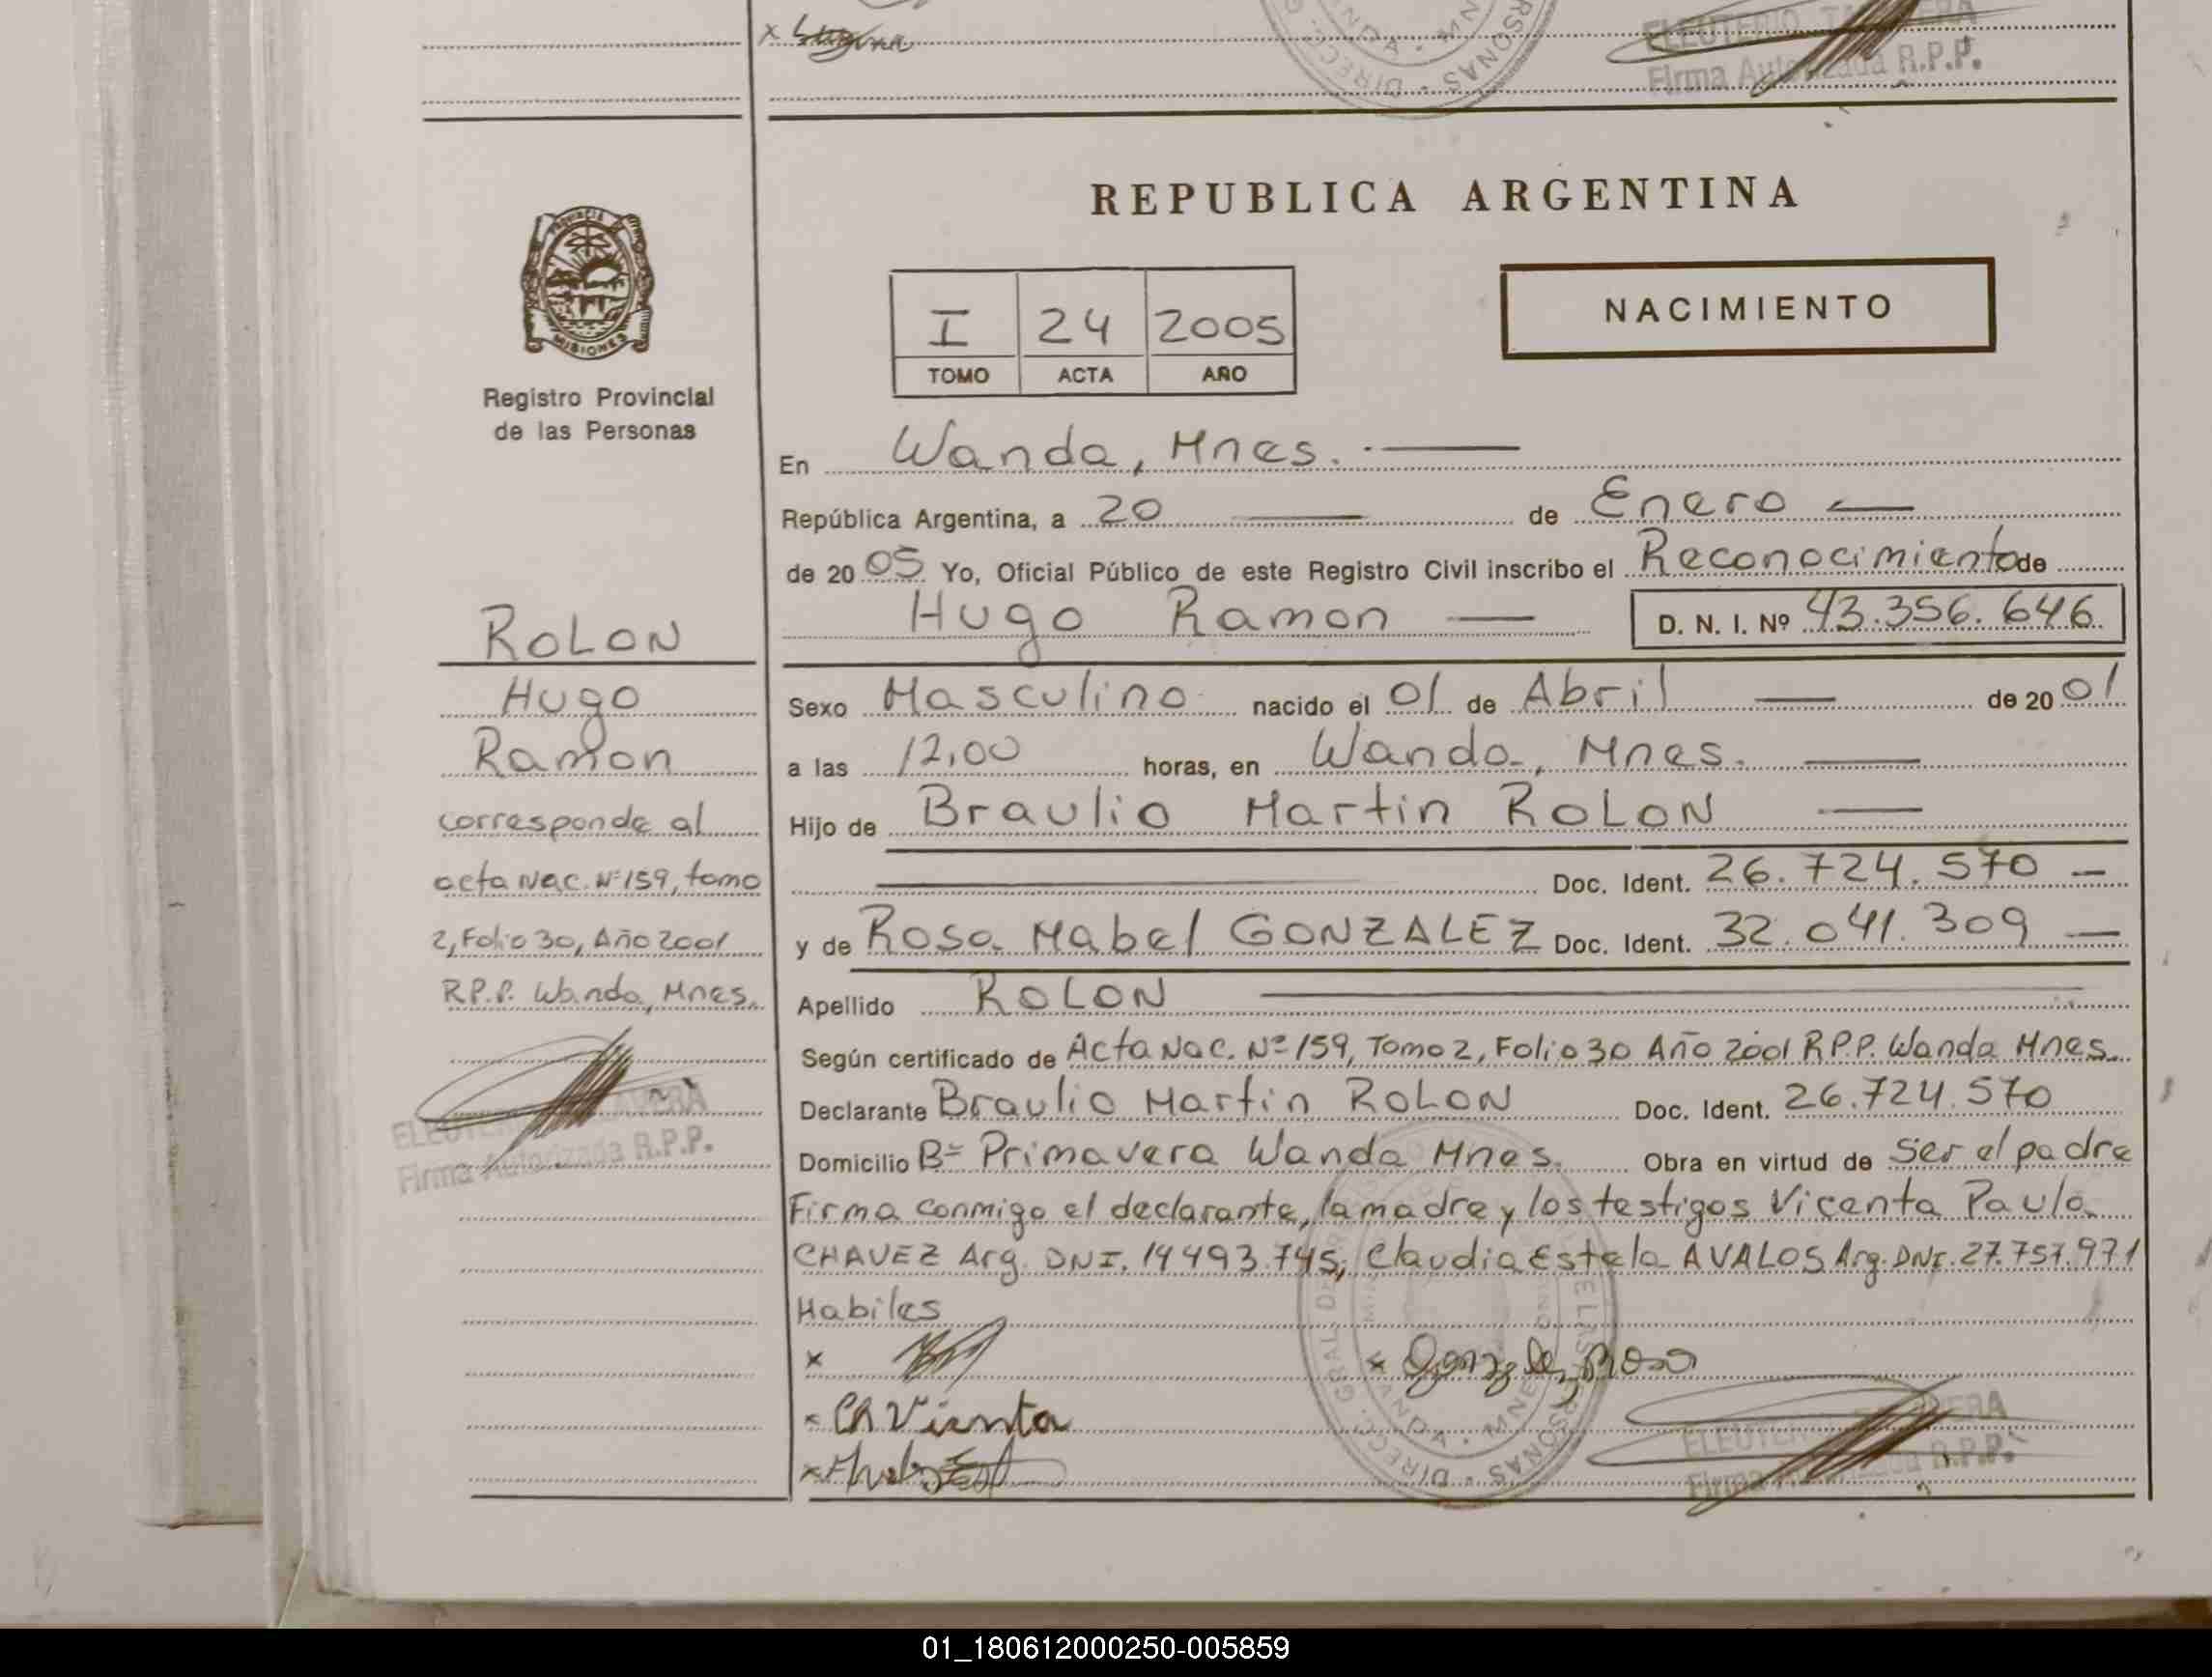 Firma Autorizada R.P.P.
REPUBLICA ARGENTINA
NACIMIENTO
I 24 2005
TOMO ACTA AÑO
PROVINCIA
MISIONES
Registro Provincial
de las Personas
En Wanda, Mnes.
República Argentina, a 20 de Enero
de 2005 Yo, Oficial Público de este Registro Civil inscribo el Reconocimiento de
Hugo Ramon D. N. I. Nº 43.356.646
ROLON
Hugo
Ramon
corresponde al
acta Nac. Nº 159, tomo
2, Folio 30, Año 2001
R.P.P. Wanda, Mnes.
Firma Autorizada R.P.P.
Sexo Masculino nacido el 01 de Abril de 2001
a las 12,00 horas, en Wanda, Mnes.
Hijo de Braulio Martin ROLON
Doc. Ident. 26.724.570
y de Rosa Mabel GONZALEZ Doc. Ident. 32.041.309
Apellido ROLON
Según certificado de Acta Nac. Nº 159, Tomo 2, Folio 30 Año 2001 R.P.P. Wanda Mnes.
Declarante Braulio Martin ROLON Doc. Ident. 26.724.570
Domicilio Bº Primavera Wanda Mnes. Obra en virtud de Ser el padre
Firma conmigo el declarante, la madre y los testigos Vicenta Paula
CHAVEZ Arg. DNI. 14493.745, Claudia Estela AVALOS Arg. DNI. 27.757.971
Habiles
x
x Gonzalez Rosa
x Ch Vicenta
x
Firma R.P.P.
01_180612000250-005859